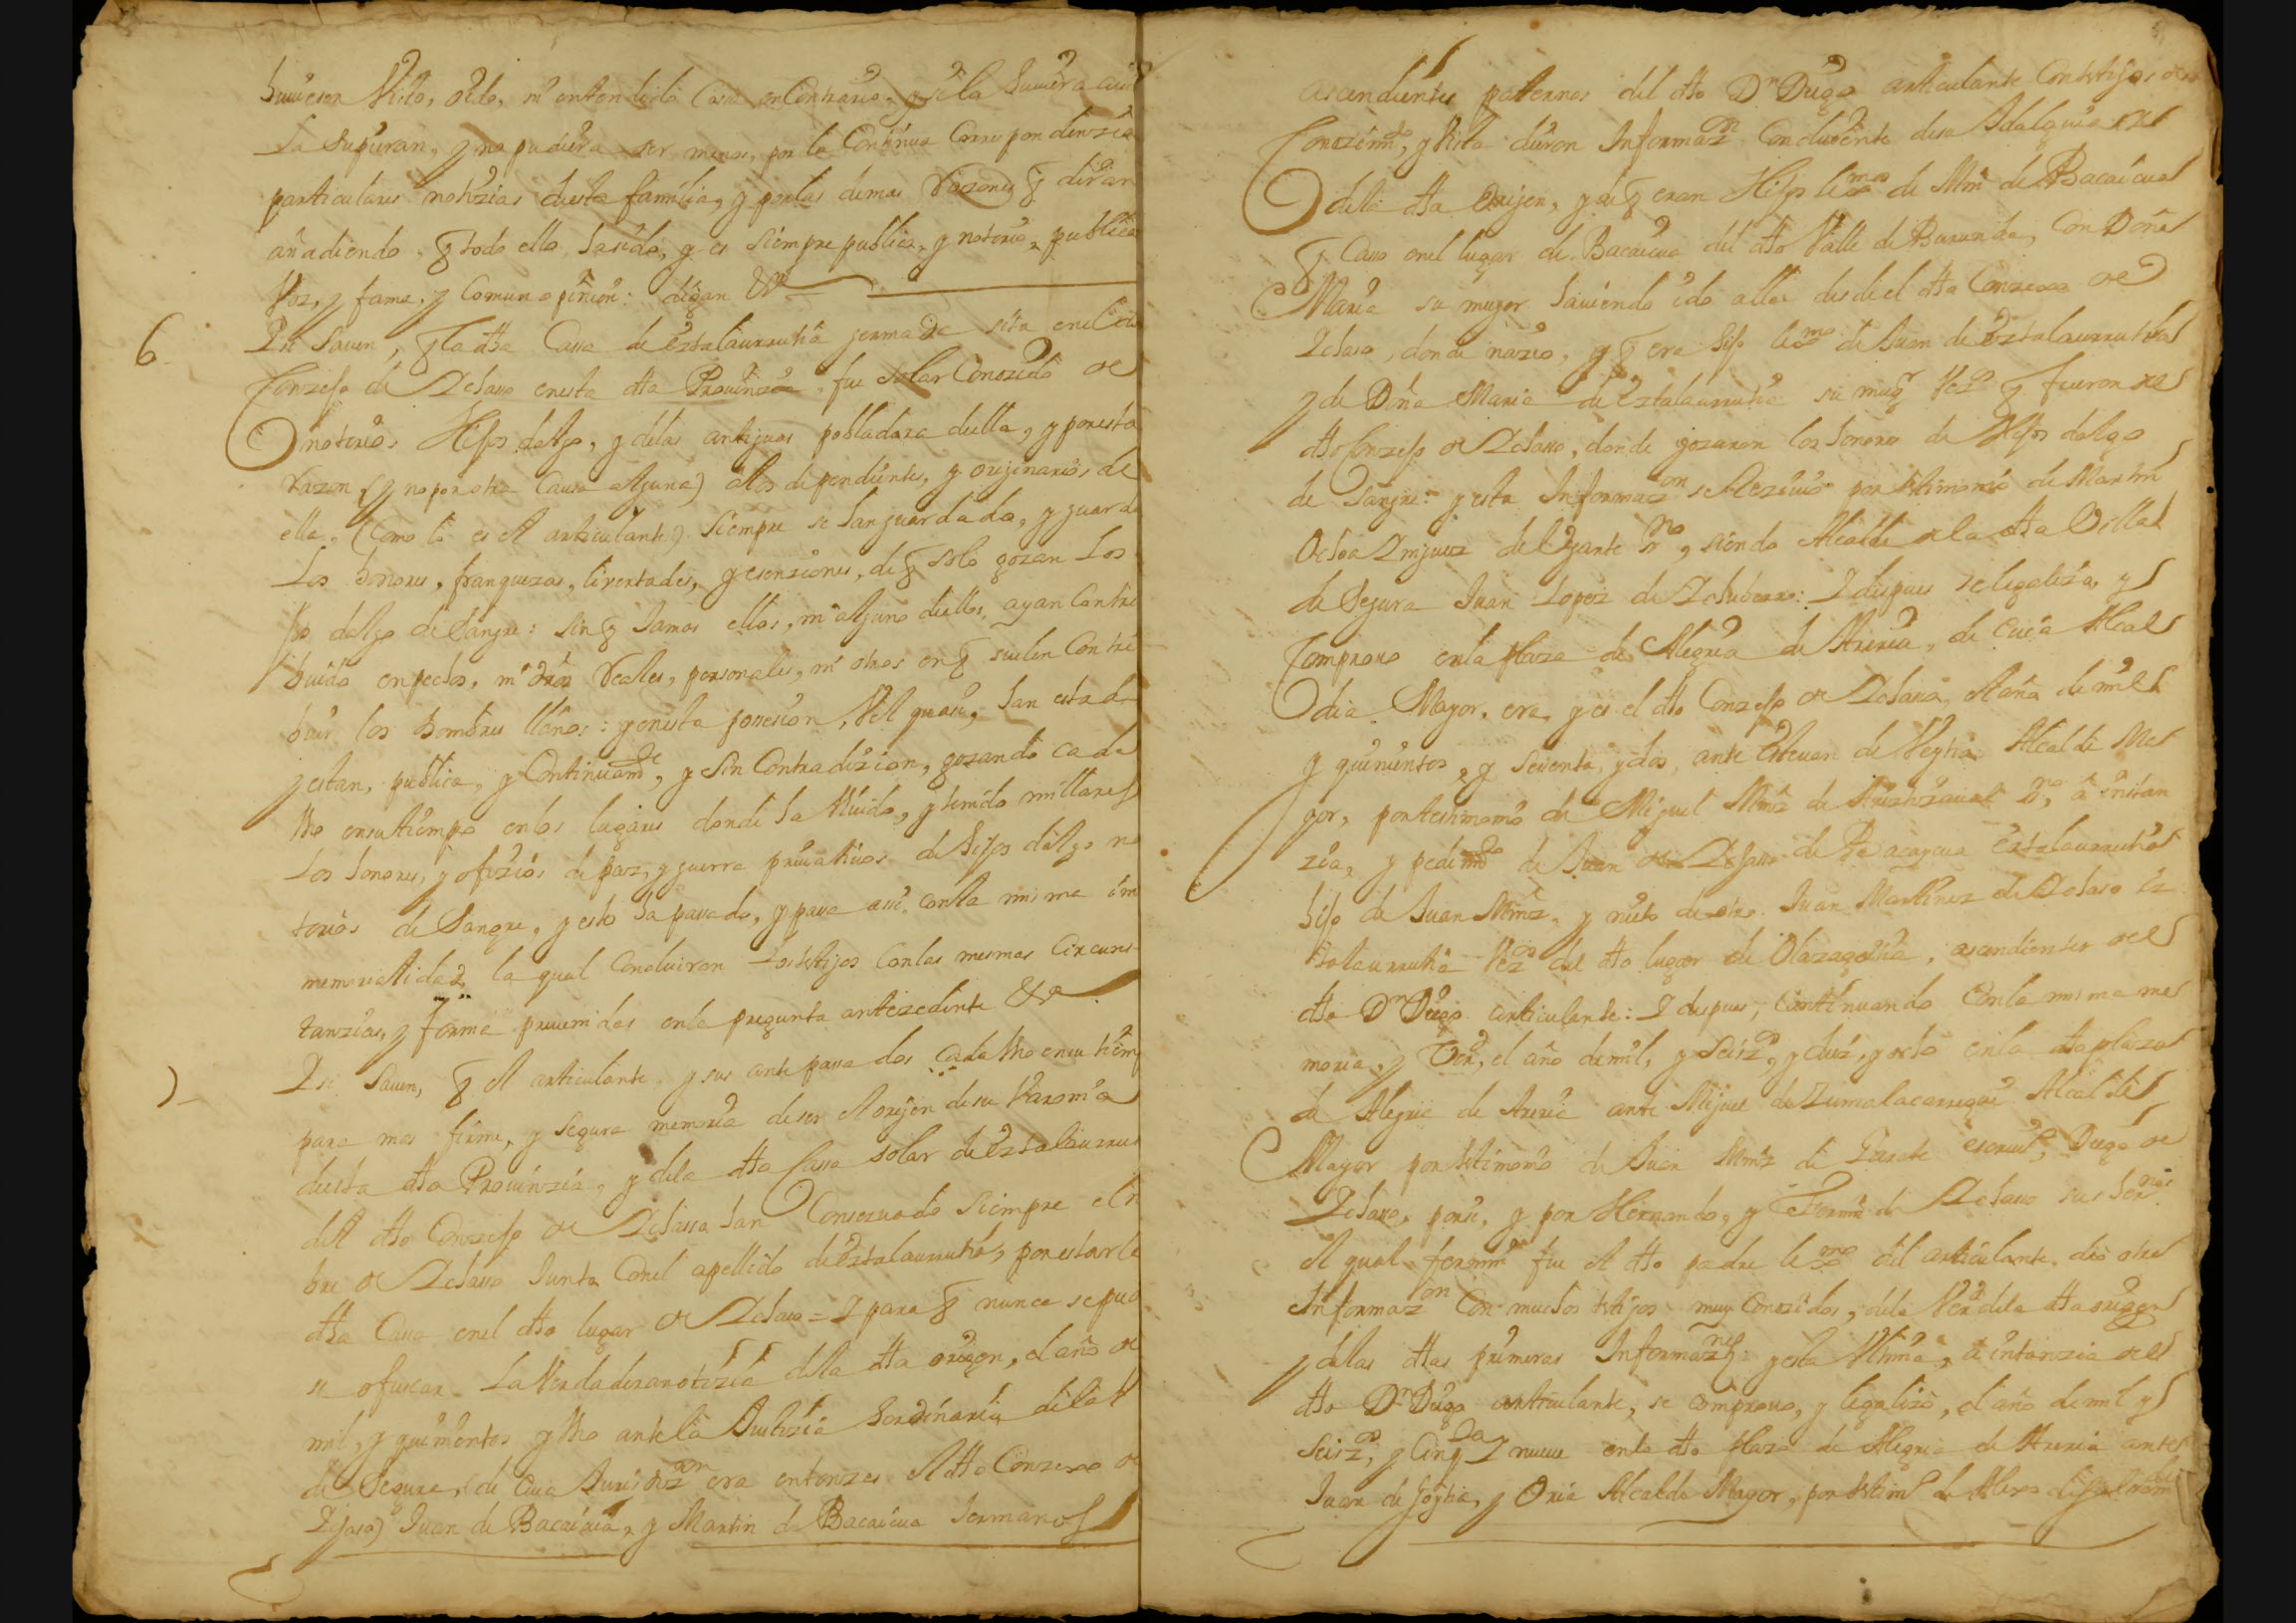 huuiesen Visto, oido, ni entendido Cosa en Contrario, y si la huuiera
la supieran, y no pudiera ser menos, por la Continua Correspondenzia
particulares notizias desta familia, y por las demas razones q diran
añadiendo q todo ello ha sido, y es siempre publico, y notorio, publica
Voz, y fama, y Comun opinion: digan &a
6 Y si sauen, q la dha Cassa de eztalaurrutia sita en el
Conzejo de Ydiasso en esta dha Prouinzia, fue solar Conozido de
notorios Hijos dalgo, y delas antiguas pobladora della, y por esta
razon (y no por otra Causa alguna) a los dependientes, y orijinarios de
ella, (Como lo es el articulante) siempre se han guardado, y guarda
los honores, franquezas, livertades, y esenziones, de q solo gozan los
hijos dalgo de sangre: sin q Jamas ellos, ni alguno dellos, ayan Contri
buido en pechos, ni Reales, personales, ni otros en q suelen Contri
buir los hombres llanos: y en esta posesion, Vel quasi, han estado
y estan, publica, y Continuamte, y sin Contradizion, gozando cada
Vno en su tiempo en los lugares donde ha Viuido, y tenido millares
los honores, y ofizios de paz, y guerra priuatiuos de hijos dalgo no
torios de Sangre, y esto ha pasado, y pasa assi, con la misma in
memorialidad, la qual Concluiran los testigos Con las mesmas Circuns
tanzias, y forma preuenidas en la pregunta antezedente &a
7 Y si sauen, q el articulante, y sus antepassados Cada Vno en su tiempo
para mas firme, y segura memoria de ser el orijen de su Varonia
desta dha Prouinzia, y dela dha Cassa solar de eztalaurru
del dho Conzejo de Ydiasso han Conseruado siempre el n
bre de Ydiasso Junto Con el apellido de eztalaurrutia, por estar la
dha Cassa en el dho lugar de Ydiaso = Y para q nunca se pue
se ofuscar la Verdadera notizia dela dha orijen, el año de
mil, y quinientos y Vno ante la Justizia hordinaria dela V
de Segura, (de Cuia Jurisdizon era entonzes el dho Conzejo de
Ydiaso) Juan de Bacaicua, y Martin de Bacaicua hermanos
ascendientes paternos del dho Dn Diego articulante Con testigos de
Conozimto, y Vista dieron Informazn Concluiente de su Idalguia
dela dha Orijen, y de q eran Hijos lexmos de Min de Bacaicua
q Caso en el lugar de Bacaicua del dho Valle de Burunda, Con Doña
Maria su muger hauiendo ido alla desde el dho Conzejo de
Ydiaso, donde nazio, y q era hijo lexmo de Juan de eztalaurrutia
y de Dña Maria de eztalaurrutia su mugr Vezos q fueron del
dho Conzejo de Ydiasso, donde gozaron los honores de Hijos dalgo
de Sangre: y esta Informazon se Reziuio por testimonio de Martin
Ochoa Yñiguez de Ugarte sno, siendo Alcalde de la dha Villa
de Segura Juan Lopez de: Y despues se legaliza, y
Comprouo en la Plaza de Alegria de Areria, de Cuia Alcal
dia Mayor, era, y es el dho Conzejo de Ydiasso, el año de mil
y quinientos, y setenta, y dos, ante Esteuan de Veytia Alcalde Ma
yor, por testimonio de Miguel Minz de sno, a instan
zia, y pedimto de Juan de Ydiasso de Bacaycua Eztalaurrutia
hijo de Juan Minz, y nieto de otro Juan Martinez de Ydiaso ez
talaurrutia Vezos del dho lugar de Olazagutia, ascendientes del
dho Dn Diego articulante: Y despues, Continuando Con la misma me
moria, y, el año de mil, y seiszos, y diez, y ocho en la dha plaza
de Alegria de Areria ante Miguel de Zumalacarregui Alcalde
Mayor por testimonio de Juan Minz de Zarate escriuo, Diego de
Ydiaso, por si, y por Hernando, y Fermin de Ydiasso sus hernos
el qual fermin fue el dho padre lexmo del articulante, dio otra
Informazon Con muchos testigos muy Conozidos, dela Verd dela dha orijen
y delas dhas primeras Informaznes: y esta Vltima, a instanzia del
dho Dn Diego articulante, se comprouo, y legalizo, el año de mil y
seiszos, y Cinqta Y nueue en la dha Plaza de Alegria de Areria ante
Juan de Goytia, y Oria Alcalde Mayor, por testimo de